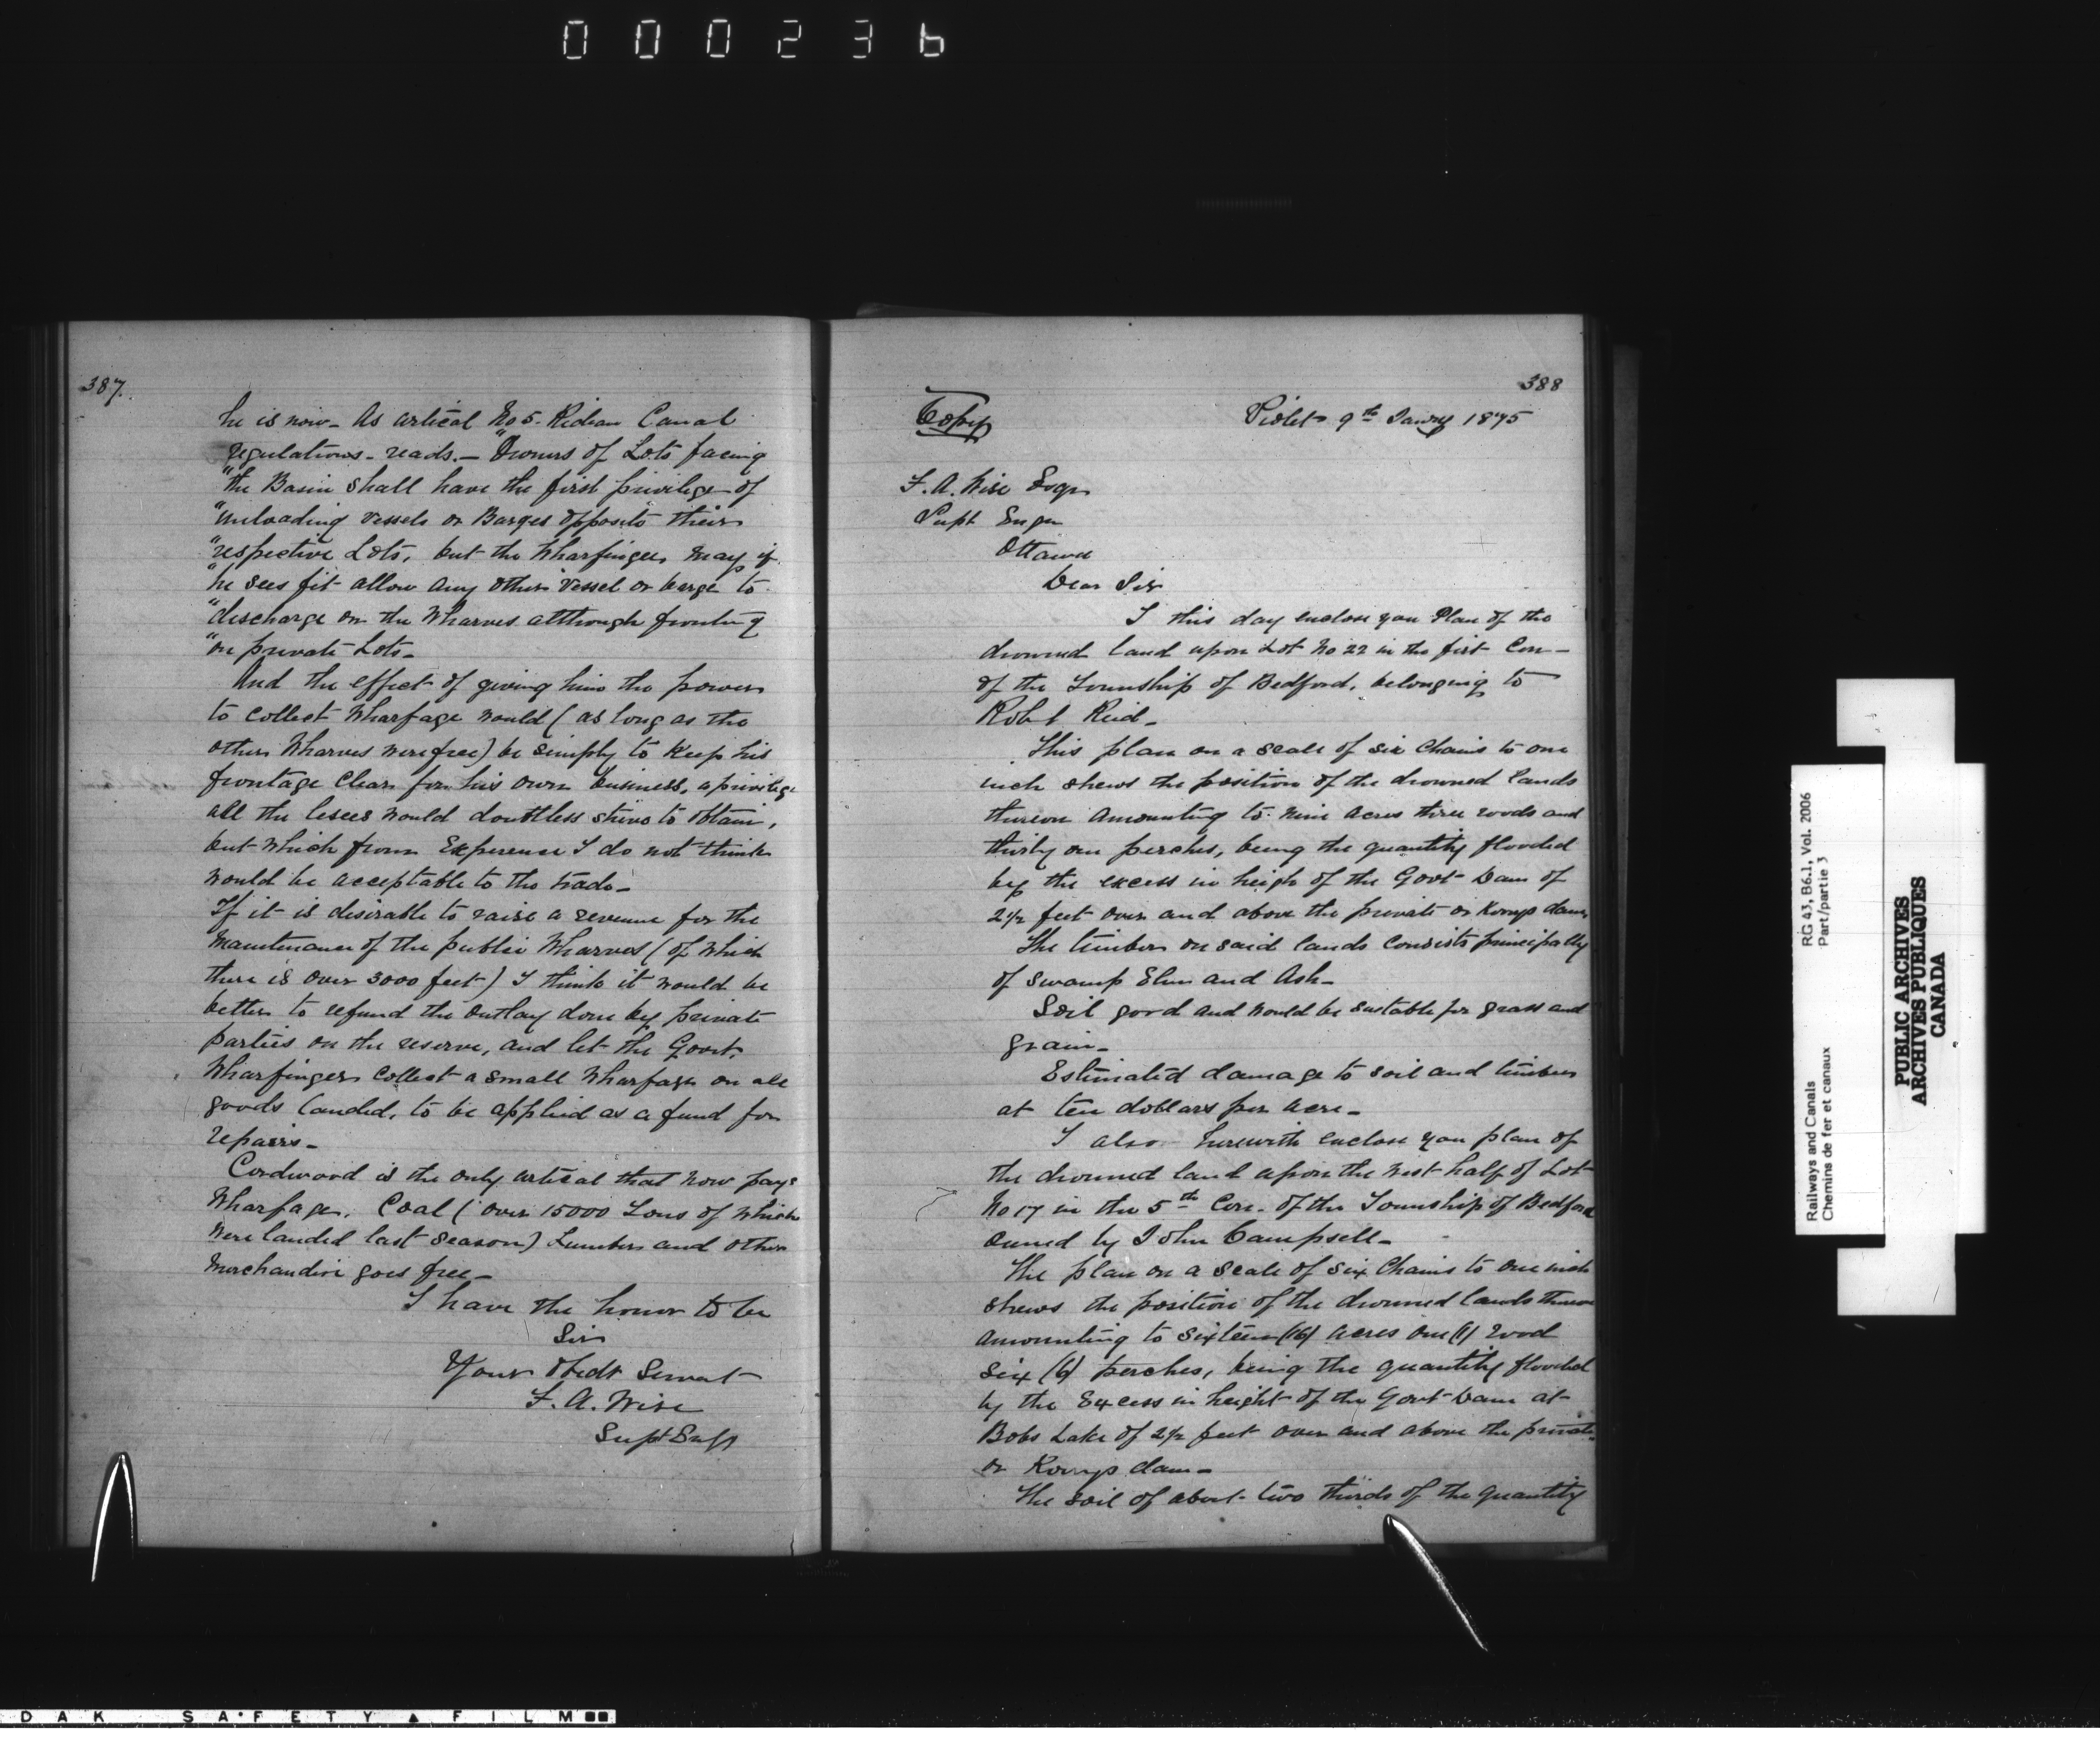 000236
387.
he is now_ As artical No 5. Rideau Canal
regulations_ reads._ "Owners of Lots facing
"the Basin shall have the first privilege of
"unloading vessels or Barges opposite their
"respective Lots, but the Wharfinger may if
"he sees fit allow any other Vessel or barge to
"discharge on the Wharves although fronting
"on private Lots_
And the effect of giving him the power
to collect Wharfage would (as long as the
other Wharves were free) be simply to keep his
frontage Clear for his own business, a privilege
all the lesees would doubtless strive to obtain,
but which from Experience I do not think
would be acceptable to the trade_
If it is desirable to raise a revenue for the
maintenance of the public Wharves (of which
there is over 3000 feet) I think it would be
better to refund the outlay done by private
parties on the reserve, and let the Govt.
Wharfinger collect a small Wharfage on all
goods landed, to be applied as a fund for
repairs_
Cordwood is the only artical that now pays
Wharfage. Coal (over 15000 Tons of which
were landed last season) Lumber and other
Merchandise goes free_
I have the honor to be
Sir
Your Obedt Servant
F. A. Wise
Supt Engr
388
Copy
Violet 9th Jany 1875
F. A. Wise Esqr
Supt Engr
Ottawa
Dear Sir
I this day enclose you Plan of the
drowned land upon Lot No 22 in the first Con_
of the Township of Bedford, belonging to
Robt Reid_
This plan on a scale of six Chains to one
inch shews the position of the drowned lands
thereon amounting to nine acres three roods and
thirty one perches, being the quantity flooded
by the excess in heigh of the Govt Dam of
2 1/2 feet over and above the private or Korrys dam,
The timber on said lands consists principally
of swamp Elm and Ash_
Soil good and would be suitable for grass and
grain_
Estimated damage to soil and timber
at ten dollars per acre_
I also herewith enclose you plan of
the drowned land upon the West half of Lot
No 17 in the 5th Con. of the Township of Bedford
owned by John Campsell_
The plan on a scale of six Chains to one inch
shews the position of the drowned lands thereon
amounting to sixteen (16) acres one (1) rood
six (6) perches, being the quantity flooded
by the Excess in height of the Govt Dam at
Bobs Lake of 2 1/2 feet over and above the private
or Korrys dam_
The soil of about two thirds of the quantity
RG 43, B6.1, Vol. 2006
Part/partie 3
Railways and Canals
Chemins de fer et canaux
PUBLIC ARCHIVES
ARCHIVES PUBLIQUES
CANADA
DAK SAFETY FILM